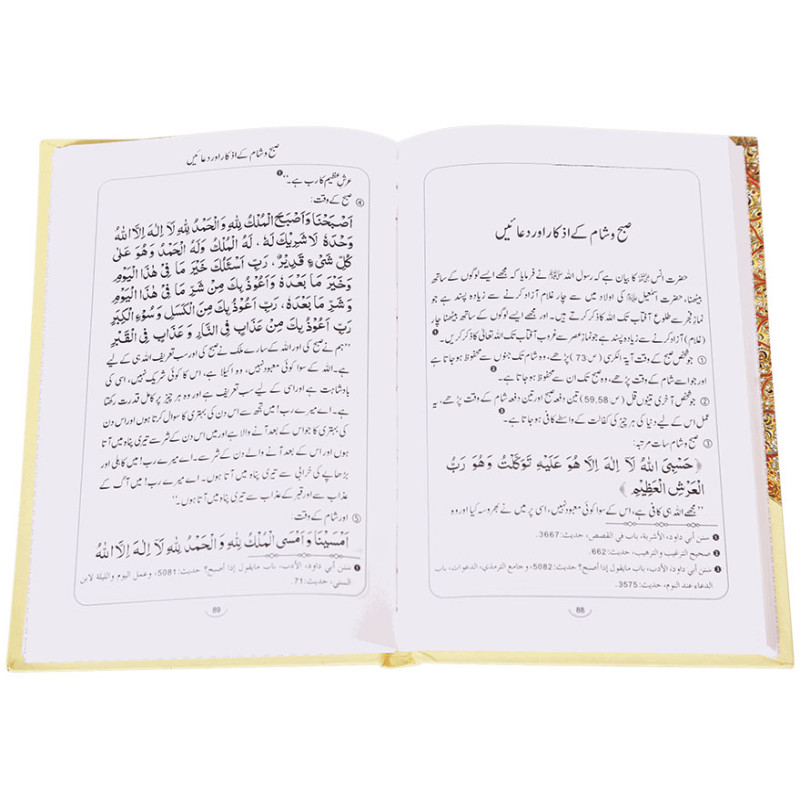 صبح و شام کے اذکار اور دعائیں
حضرت انس رضی اللہ عنہ کا بیان ہے کہ رسول اللہ ﷺ نے فرمایا کہ مجھے ایسے لوگوں کے ساتھ
بیٹھنا، حضرت اسمٰعیل علیہ السلام کی اولاد میں سے چار غلام آزاد کرنے سے زیادہ پسند ہے جو
نماز فجر سے طلوع آفتاب تک اللہ کا ذکر کرتے ہیں۔ اور مجھے ایسے لوگوں کے ساتھ بیٹھنا چار
(غلام) آزاد کرنے سے زیادہ پسند ہے جو نماز عصر سے غروب آفتاب تک اللہ تعالیٰ کا ذکر کریں۔ ❶
① جو شخص صبح کے وقت آیۃ الکرسی (ص 73) پڑھے، وہ شام تک جنوں سے محفوظ ہو جاتا ہے
اور جو اسے شام کو پڑھے، وہ صبح تک ان سے محفوظ ہو جاتا ہے۔ ❷
② جو شخص آخری تینوں قل (ص 59,58) تین دفعہ صبح اور تین دفعہ شام کے وقت پڑھے، یہ
عمل اس کے لیے دنیا کی ہر چیز کی کفالت کے واسطے کافی ہو جاتا ہے۔ ❸
③ صبح و شام سات مرتبہ:
﴿حَسْبِيَ اللّٰهُ لَآ اِلٰهَ اِلَّا هُوَ عَلَيْهِ تَوَكَّلْتُ وَهُوَ رَبُّ
الْعَرْشِ الْعَظِيْمِ﴾
”مجھے اللہ ہی کافی ہے، اس کے سوا کوئی معبود نہیں، اسی پر میں نے بھروسہ کیا اور وہ
❶ سنن أبي داود، الأشربة، باب في القصص، حديث:3667.
❷ صحيح الترغيب والترهيب، حديث:662.
❸ سنن أبي داود، الأدب، باب مايقول إذا أصبح؟ حديث:5082، و جامع الترمذي، الدعوات، باب
الدعاء عند النوم، حديث:3575.
88
صبح و شام کے اذکار اور دعائیں
عرشِ عظیم کا رب ہے۔“ ❶
④ صبح کے وقت:
اَصْبَحْنَا وَاَصْبَحَ الْمُلْكُ لِلّٰهِ وَالْحَمْدُ لِلّٰهِ لَآ اِلٰهَ اِلَّا اللّٰهُ
وَحْدَهٗ لَا شَرِيْكَ لَهٗ، لَهُ الْمُلْكُ وَلَهُ الْحَمْدُ وَهُوَ عَلٰى
كُلِّ شَيْءٍ قَدِيْرٌ، رَبِّ اَسْئَلُكَ خَيْرَ مَا فِيْ هٰذَا الْيَوْمِ
وَخَيْرَ مَا بَعْدَهٗ وَاَعُوْذُ بِكَ مِنْ شَرِّ مَا فِيْ هٰذَا الْيَوْمِ
وَشَرِّ مَا بَعْدَهٗ، رَبِّ اَعُوْذُ بِكَ مِنَ الْكَسَلِ وَسُوْءِ الْكِبَرِ
رَبِّ اَعُوْذُ بِكَ مِنْ عَذَابٍ فِي النَّارِ وَ عَذَابٍ فِي الْقَبْرِ
”ہم نے صبح کی اور اللہ کے سارے ملک نے صبح کی اور سب تعریف اللہ ہی کے لیے
ہے۔ اللہ کے سوا کوئی معبود نہیں، وہ اکیلا ہے، اس کا کوئی شریک نہیں، اسی کی
بادشاہت ہے اور اسی کے لیے سب تعریف ہے اور وہ ہر چیز پر کامل قدرت رکھتا
ہے۔ اے میرے رب! میں تجھ سے اس دن کی بہتری کا سوال کرتا ہوں اور اس دن
کی بہتری کا جو اس کے بعد آنے والا ہے اور میں اس دن کے شر سے تیری پناہ میں آتا
ہوں اور اس کے بعد آنے والے دن کے شر سے۔ اے میرے رب! میں کاہلی اور
بڑھاپے کی خرابی سے تیری پناہ میں آتا ہوں۔ اے میرے رب! میں آگ کے
عذاب سے اور قبر کے عذاب سے تیری پناہ میں آتا ہوں۔“
⑤ اور شام کے وقت:
اَمْسَيْنَا وَ اَمْسَى الْمُلْكُ لِلّٰهِ وَالْحَمْدُ لِلّٰهِ لَآ اِلٰهَ اِلَّا اللّٰهُ
❶ سنن أبي داود، الأدب، باب مايقول إذا أصبح؟ حديث:5081، وعمل اليوم والليلة لابن
السني، حديث:71.
89